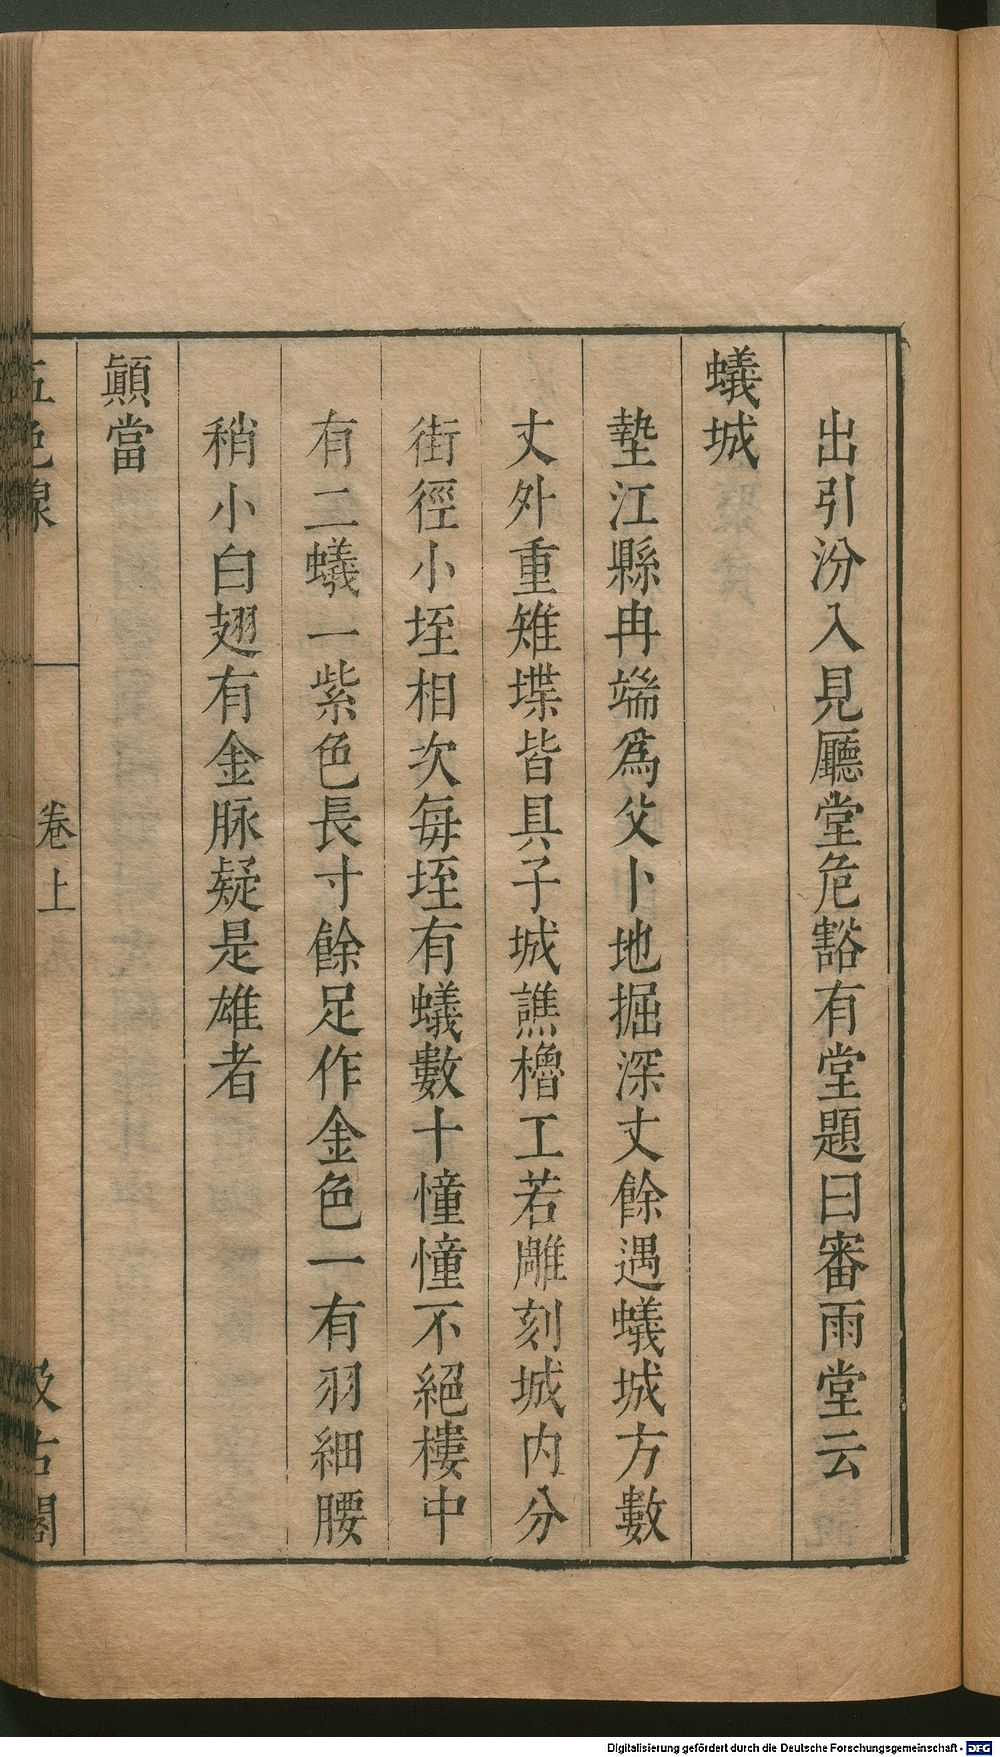 出引汾入見廳堂危豁有堂題曰審雨堂云
蟻城
墊江縣冉端爲父卜地掘深丈餘遇蟻城方數
丈外重雉堞皆具子城譙櫓工若雕刻城内分
街徑小垤相次每垤有蟻數十憧憧不絕樓中
有二蟻一紫色長寸餘足作金色一有羽細腰
稍小白翅有金脉疑是雄者
顚當
五色線
卷上
汲古閣
Digitalisierung gefördert durch die Deutsche Forschungsgemeinschaft - DFG